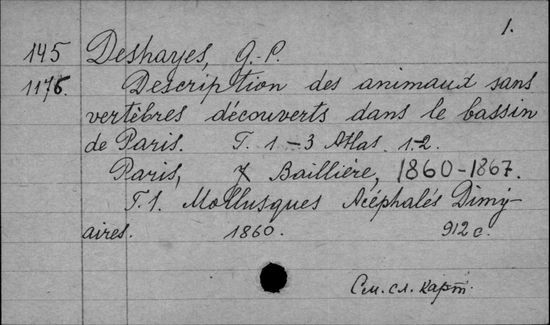 1.
145 Deshayes, G.-P.
1176. Description des animaux sans
vertèbres découverts dans le bassin
de Paris. T. 1-3 Atlas. 1-2.
Paris, Baillière, 1860-1867.
T. 1. Mollusques Acéphalés Dimy-
aires. 1860. 912 c.
См. сл. карт.